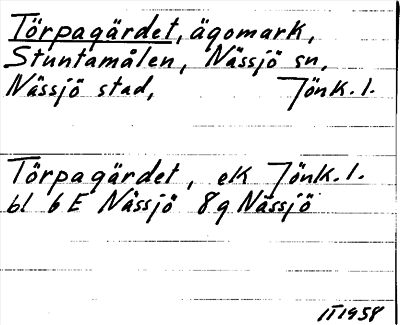 Törpagärdet, ägomark,
Stuntamålen, Nässjö sn,
Nässjö stad, Jönk. l.
Törpagärdet, ek Jönk. l.
bl 6E Nässjö 8g Nässjö
II 1958